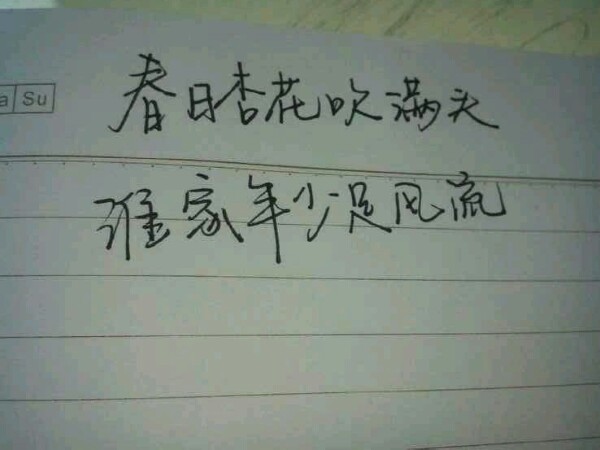 a Su
春日杏花吹满天
谁家年少足风流